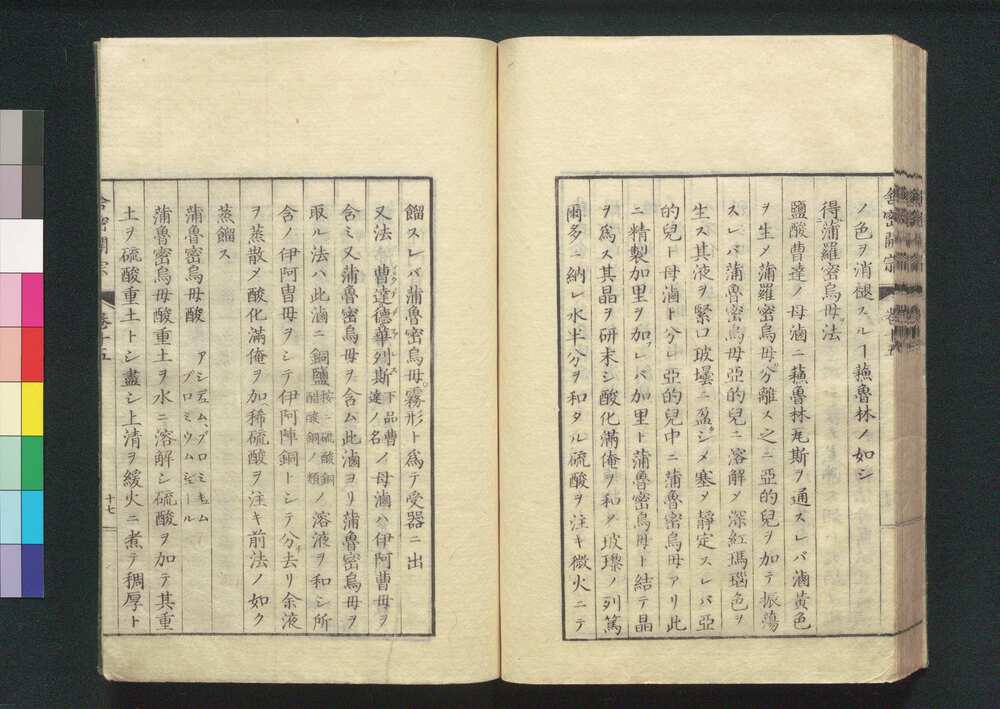 舎密開宗
ノ色ヲ消褪スルヿ蘓魯林ノ如シ
得蒲羅密烏母法
鹽酸曹達ノ母滷ニ蘓魯林瓦斯ヲ通スレバ滷黄色
ヲ生メ蒲羅密烏母分離ス之ニ亞的兒ヲ加テ振蕩
スレバ蒲魯密烏母亞的兒ニ溶解メ深紅瑪瑙色ヲ
生ス其液ヲ緊口玻壜ニ盈シメ塞メ靜定スレバ亞
的兒ト母滷ト分レ亞的兒中ニ蒲魯密烏母アリ此
ニ精製加里ヲ加フレバ加里ト蒲魯密烏母ト結テ晶
ヲ爲ス其晶ヲ研末シ酸化滿俺ヲ和メ玻璨ノ列篤
爾多ニ納レ水半分ヲ和タル硫酸ヲ注キ微火ニテ
餾スレバ蒲魯密烏母霧形ト爲テ受器ニ出
又法 曹達德華列斯下品曹達ノ名ノ母滷ハ伊阿曹母ヲ
含ミ又蒲魯密烏母ヲ含ム此滷ヨリ蒲魯密烏母ヲ
取ル法ハ此滷ニ銅鹽按ニ硫酸銅醋酸銅ノ類ノ溶液ヲ和シ所
含ノ伊阿曹母ヲシテ伊阿陣銅トシテ分チ去リ余液
ヲ蒸散メ酸化滿俺ヲ加ヘ稀硫酸ヲ注キ前法ノ如ク
蒸餾ス
蒲魯密烏母酸 アシデュム、ブロミキュム ブロミウムシュール
蒲魯密烏母酸重土ヲ水ニ溶解シ硫酸ヲ加テ其重
土ヲ硫酸重土トシ盡シ上清ヲ緩火ニ煮テ稠厚ト
舎密開宗 巻十五 十七